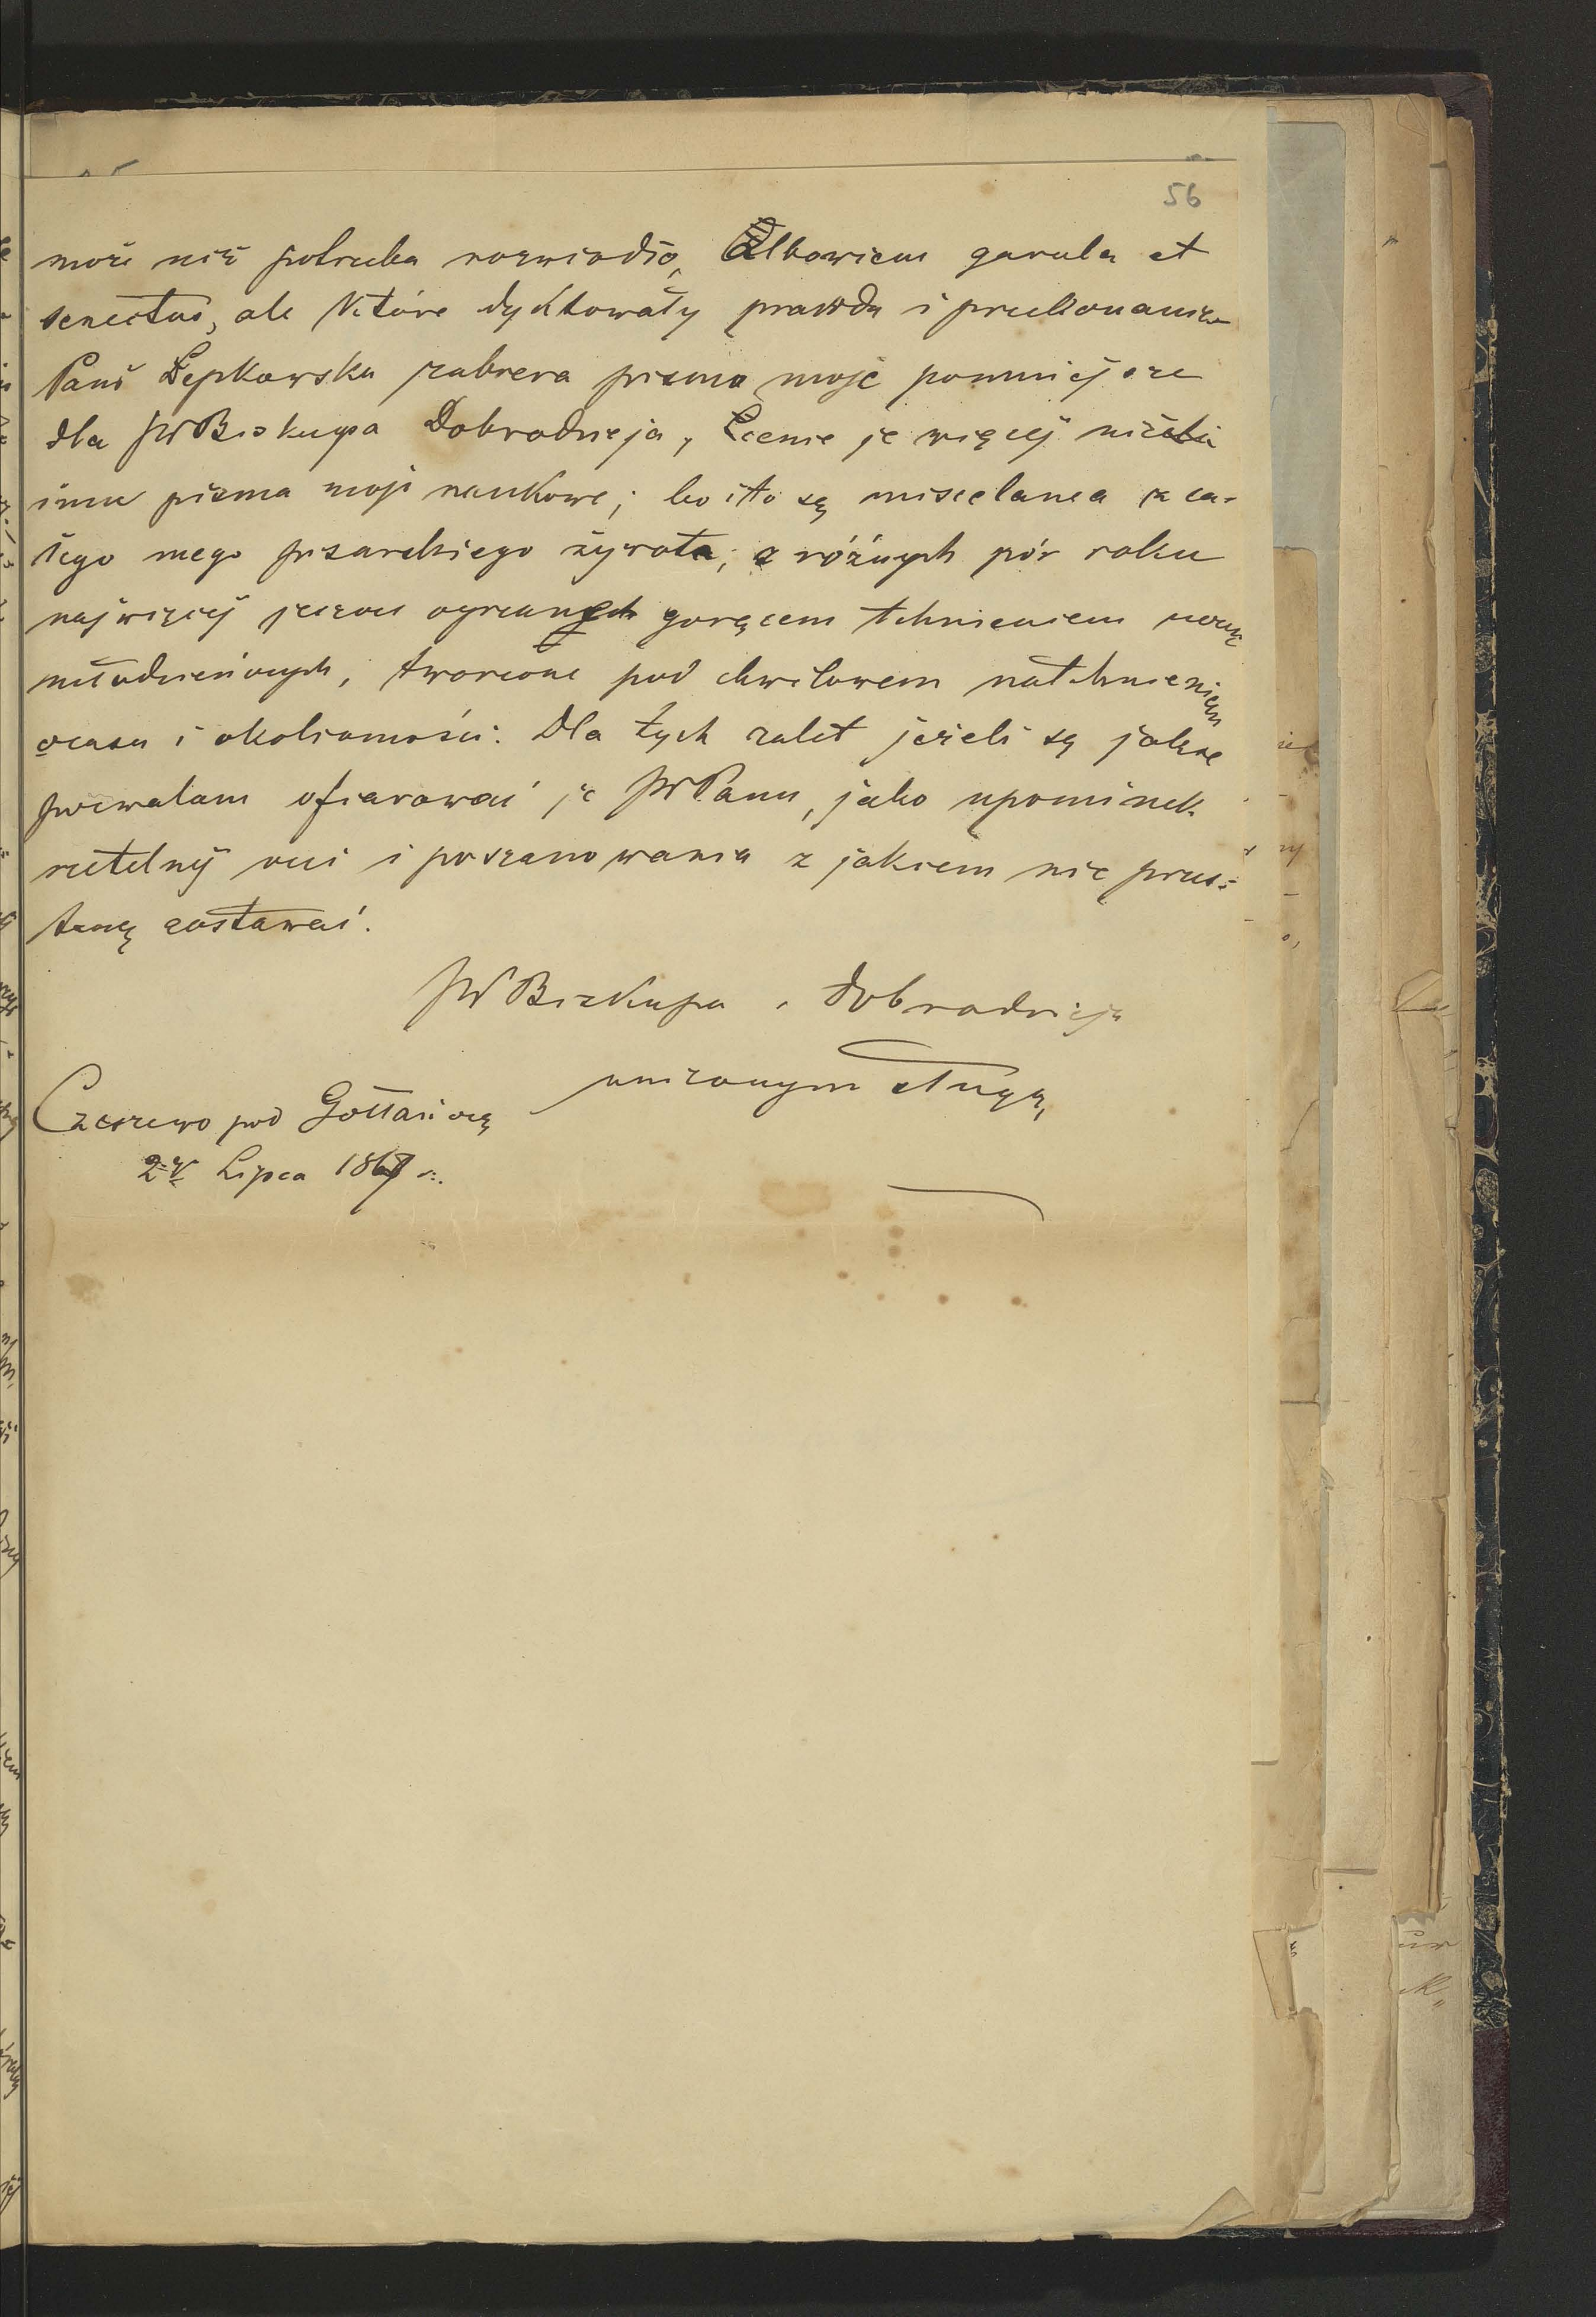 56
może niż potrzeba rozwiodło, Albowiem garula et
senectus, ale które dyktowały prawda i przekonanie
Pani Łepkowska zabrera pisma moje pomniejsze
dla JWBiskupa Dobrodzieja, Cenię je więcej niżeli
inne pisma moje naukowe; bo ito są miscelanea z ca-
łego mego pisarskiego żywota, z różnych pór roku
najwięcej jeszcze ogrzanych gorącem tchnieniem uczuć
młodzieńczych, tworzone pod chwilowem natchnieniem
czasu i okoliczności. Dla tych zalet jeżeli są jakie
pozwalam ofiarować je JWPanu, jako upominek
rzetelnij czci i poszanowania z jakiem nie przes-
tanę zostawać.
JWBiskupa i Dobrodzieja
uniżonym sługą,
Czeszewo pod Gołłańczą
Lipca 1867 r.